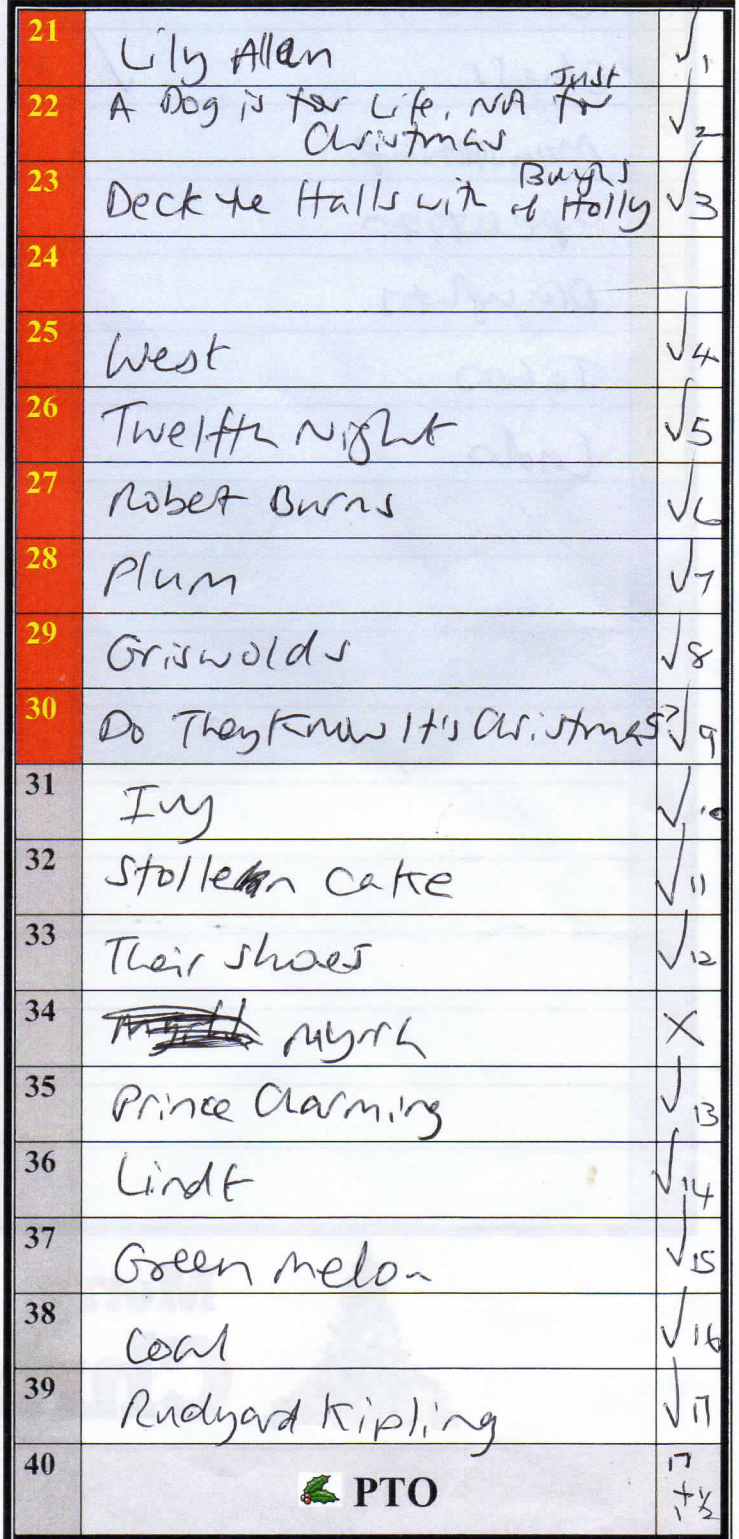 21 Lily Allen √1
22 A Dog is for Life, Not Just for √2
Christmas
23 Deck the Halls with Boughs of Holly √3
24
25 West √4
26 Twelfth Night √5
27 Robert Burns √6
28 Plum √7
29 Griswolds √8
30 Do They Know It's Christmas? √9
31 Ivy √10
32 Stollen cake √11
33 Their shoes √12
34 Myrrh X
35 Prince Charming √13
36 Lindt √14
37 Green melon √15
38 Coal √16
39 Rudyard Kipling √17
40 PTO 17
+ 1 1/2